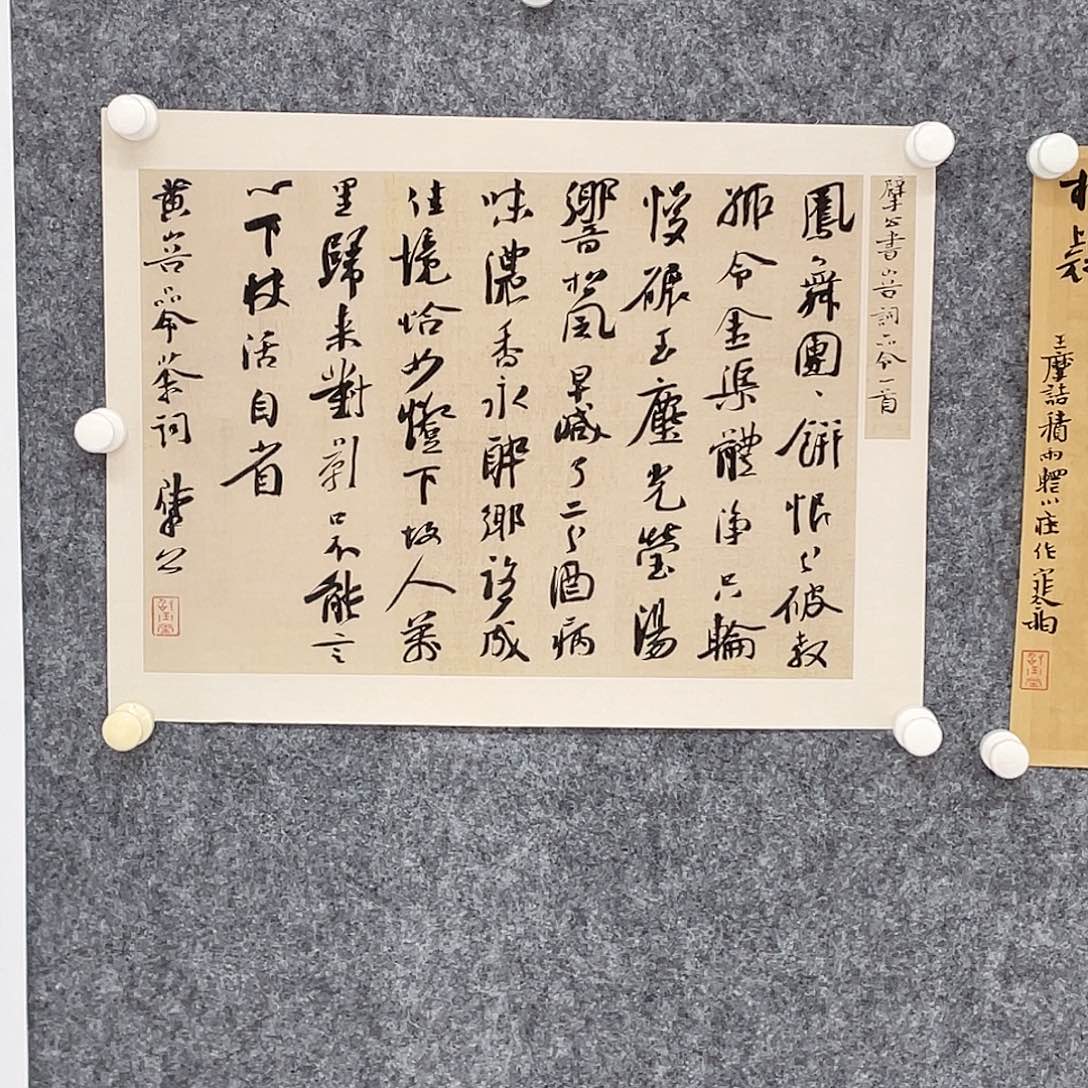 擘公書山谷詞品令一首
鳳舞團〻餅恨分破教
孤令金渠體淨只輪
慢碾玉塵光瑩湯
響松風早減了二分酒病
味濃香永醉鄉路成
佳境恰如燈下故人萬
里歸來對影口不能言
心下快活自省
黃山谷品令茶詞 擘公
王摩詰積雨輞川莊作